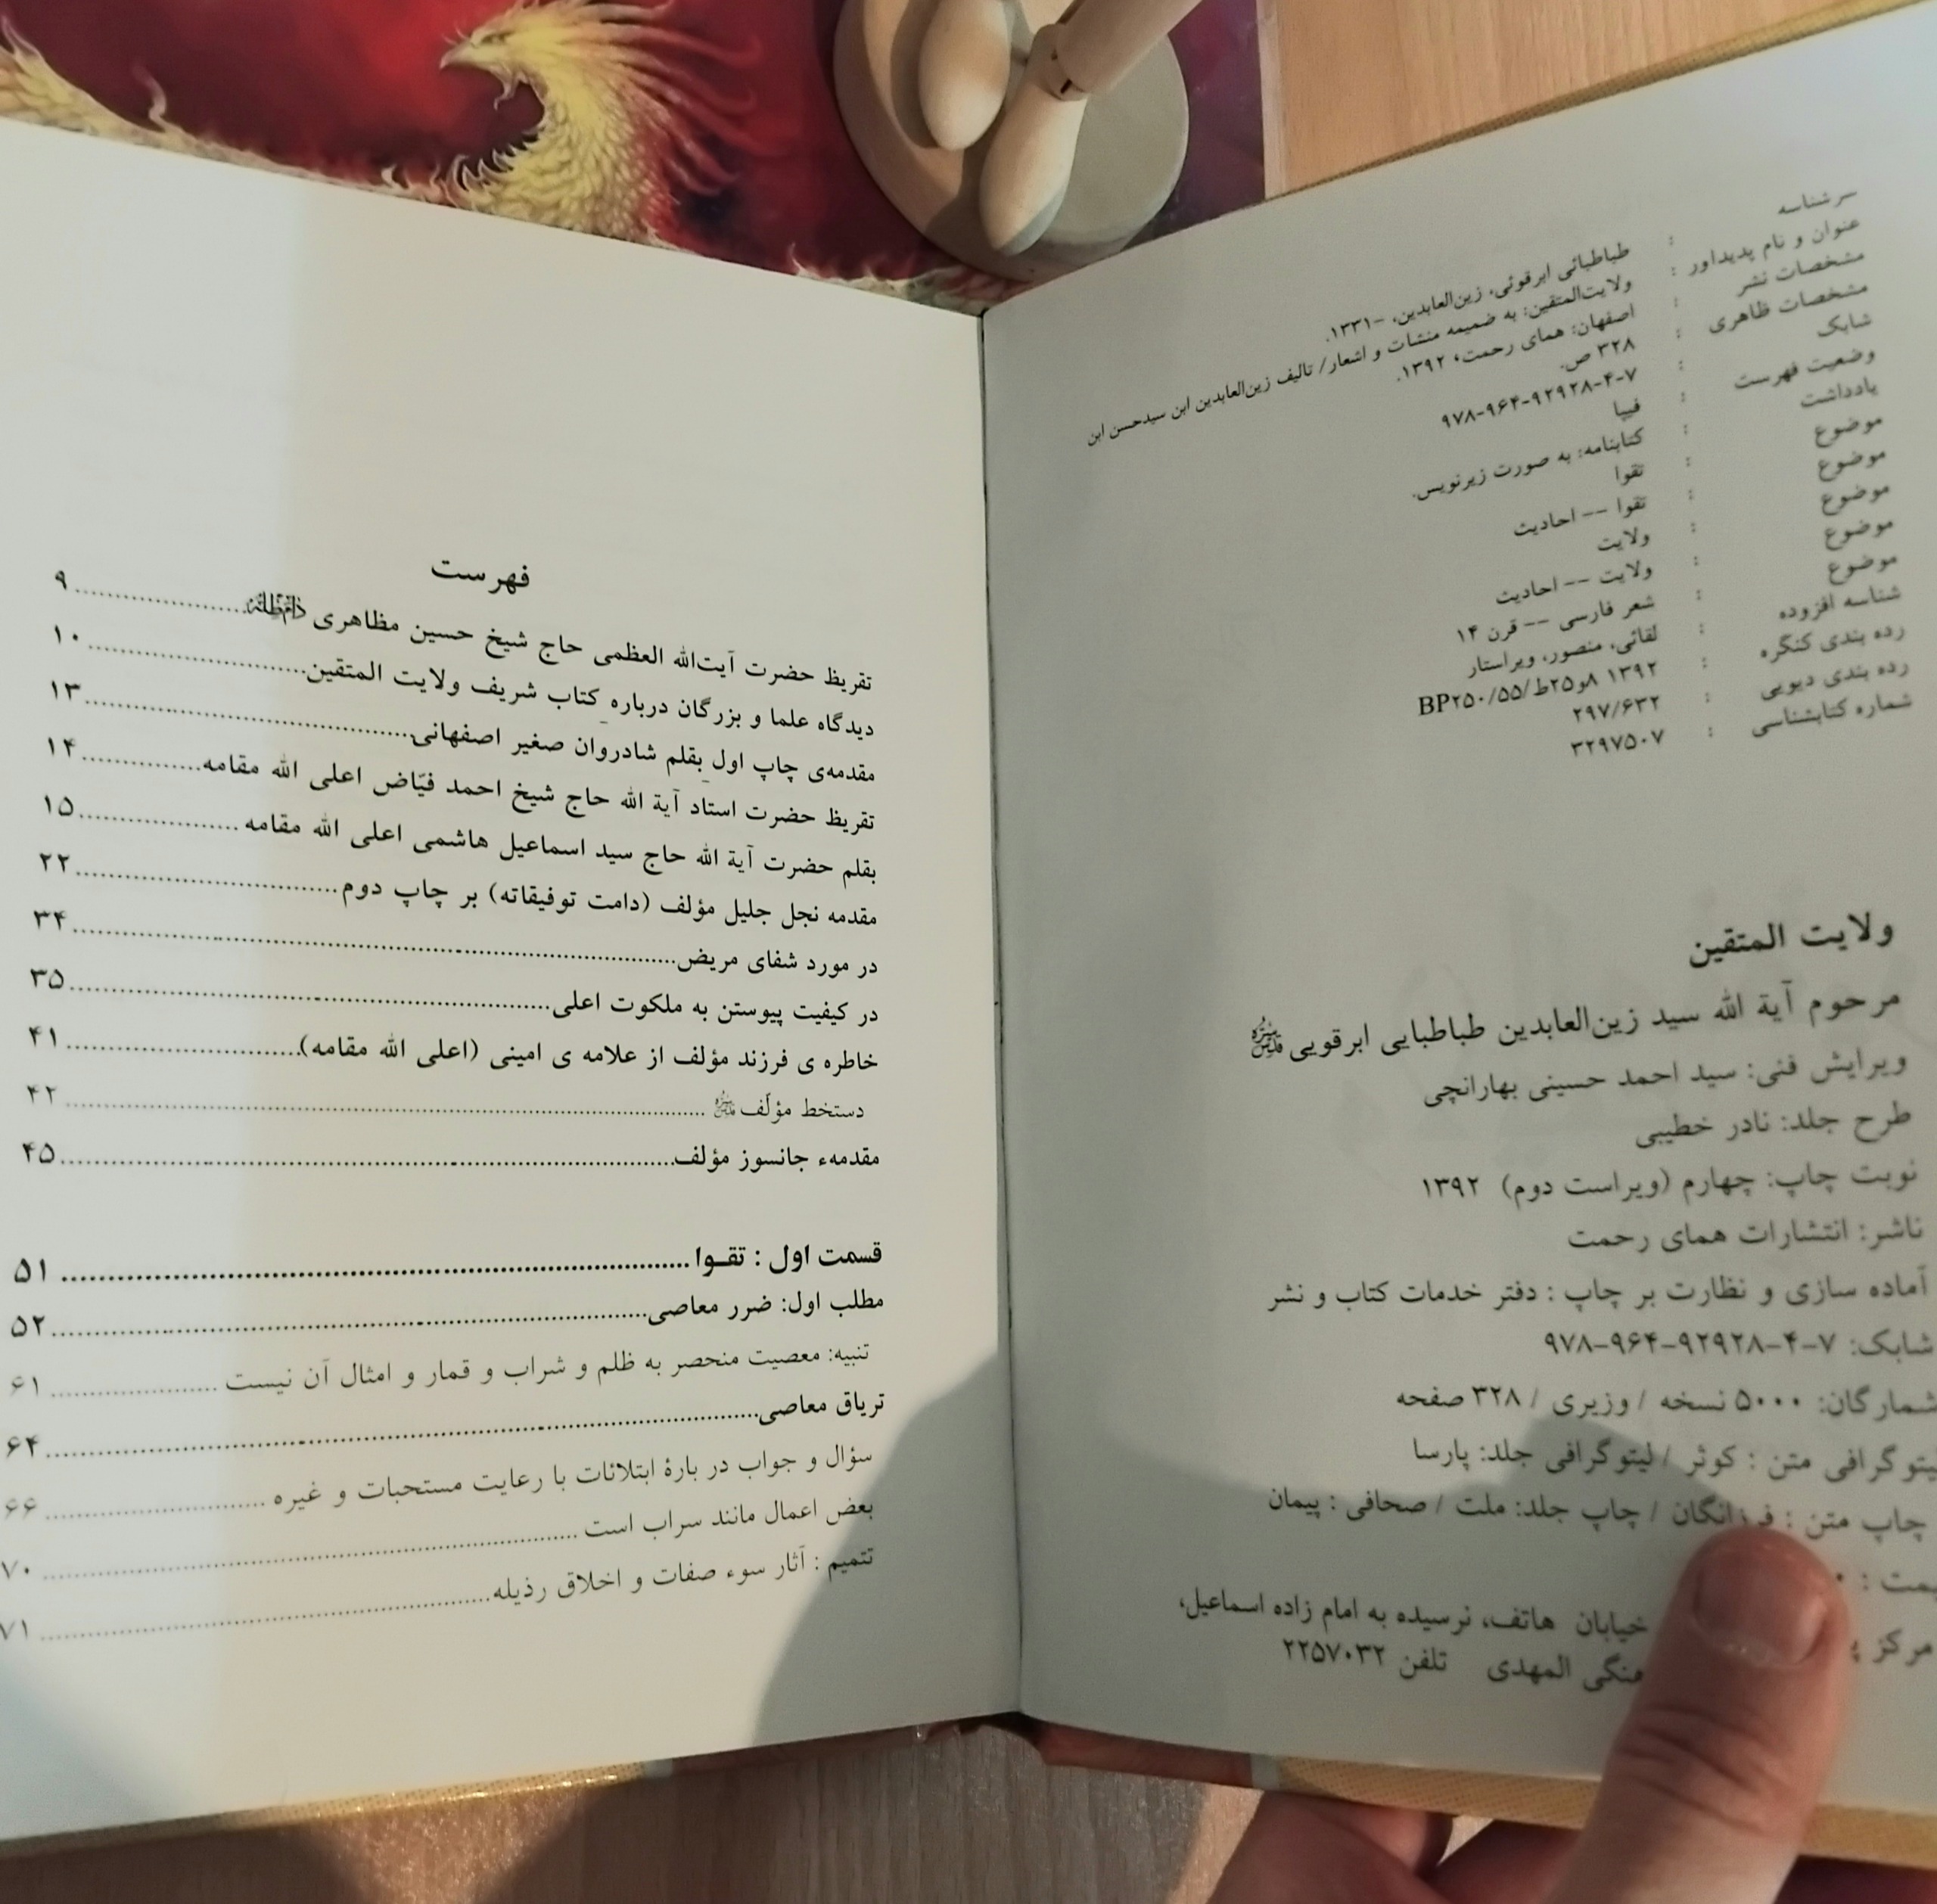 سرشناسه : طباطبائی ابرقوئی، زین‌العابدین، -۱۳۳۱.
عنوان و نام پدیدآور : ولایت‌المتقین: به ضمیمه منشات و اشعار/ تالیف زین‌العابدین ابن سیدحسن ابن
مشخصات نشر : اصفهان: همای رحمت، ۱۳۹۲.
مشخصات ظاهری : ۳۲۸ ص.
شابک : ۹۷۸-۹۶۴-۹۲۹۲۸-۴-۷
وضعیت فهرست : فیپا
یادداشت : کتابنامه: به صورت زیرنویس.
موضوع : تقوا
موضوع : تقوا -- احادیث
موضوع : ولایت
موضوع : ولایت -- احادیث
موضوع : شعر فارسی -- قرن ۱۴
شناسه افزوده : لقائی، منصور، ویراستار
رده بندی کنگره : BP۲۵۰/۵۵/ط۲۵و۸ ۱۳۹۲
رده بندی دیویی : ۲۹۷/۶۳۲
شماره کتابشناسی : ۳۲۹۷۵۰۷
ولایت المتقین
مرحوم آیة الله سید زین‌العابدین طباطبایی ابرقویی قدس‌سره
ویرایش فنی: سید احمد حسینی بهارانچی
طرح جلد: نادر خطیبی
نوبت چاپ: چهارم (ویراست دوم) ۱۳۹۲
ناشر: انتشارات همای رحمت
آماده سازی و نظارت بر چاپ : دفتر خدمات کتاب و نشر
شابک: ۷-۴-۹۲۹۲۸-۹۶۴-۹۷۸
شمارگان: ۵۰۰۰ نسخه / وزیری / ۳۲۸ صفحه
لیتوگرافی متن : کوثر / لیتوگرافی جلد: پارسا
چاپ متن : فرزانگان / چاپ جلد: ملت / صحافی : پیمان
مرکز خیابان هاتف، نرسیده به امام زاده اسماعیل،
المهدی تلفن ۲۲۵۷۰۳۲
فهرست
تقریظ حضرت آیت‌الله العظمی حاج شیخ حسین مظاهری دام‌ظله ........ ۹
دیدگاه علما و بزرگان درباره کتاب شریف ولایت المتقین ........ ۱۰
مقدمه‌ی چاپ اول بقلم شادروان صغیر اصفهانی ........ ۱۳
تقریظ حضرت استاد آیة الله حاج شیخ احمد فیّاض اعلی الله مقامه ........ ۱۴
بقلم حضرت آیة الله حاج سید اسماعیل هاشمی اعلی الله مقامه ........ ۱۵
مقدمه نجل جلیل مؤلف (دامت توفیقاته) بر چاپ دوم ........ ۲۲
در مورد شفای مریض ........ ۳۴
در کیفیت پیوستن به ملکوت اعلی ........ ۳۵
خاطره ی فرزند مؤلف از علامه ی امینی (اعلی الله مقامه) ........ ۴۱
دستخط مؤلف قدس‌سره ........ ۴۲
مقدمهء جانسوز مؤلف ........ ۴۵
قسمت اول : تقــوا ........ ۵۱
مطلب اول: ضرر معاصی ........ ۵۲
تنبیه: معصیت منحصر به ظلم و شراب و قمار و امثال آن نیست ........ ۶۱
تریاق معاصی ........ ۶۴
سؤال و جواب در بارهٔ ابتلائات با رعایت مستحبات و غیره ........ ۶۶
بعض اعمال مانند سراب است ........ ۷۰
تتمیم : آثار سوء صفات و اخلاق رذیله ........ ۷۱